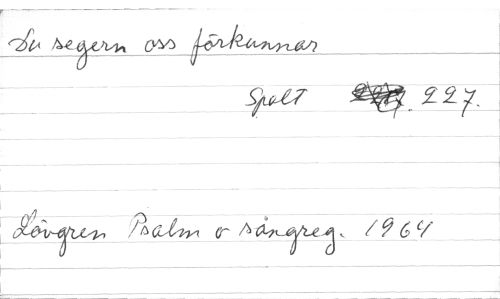 Du segern oss förkunnar
Spalt 227.
Lövgren Psalm o sångreg. 1964